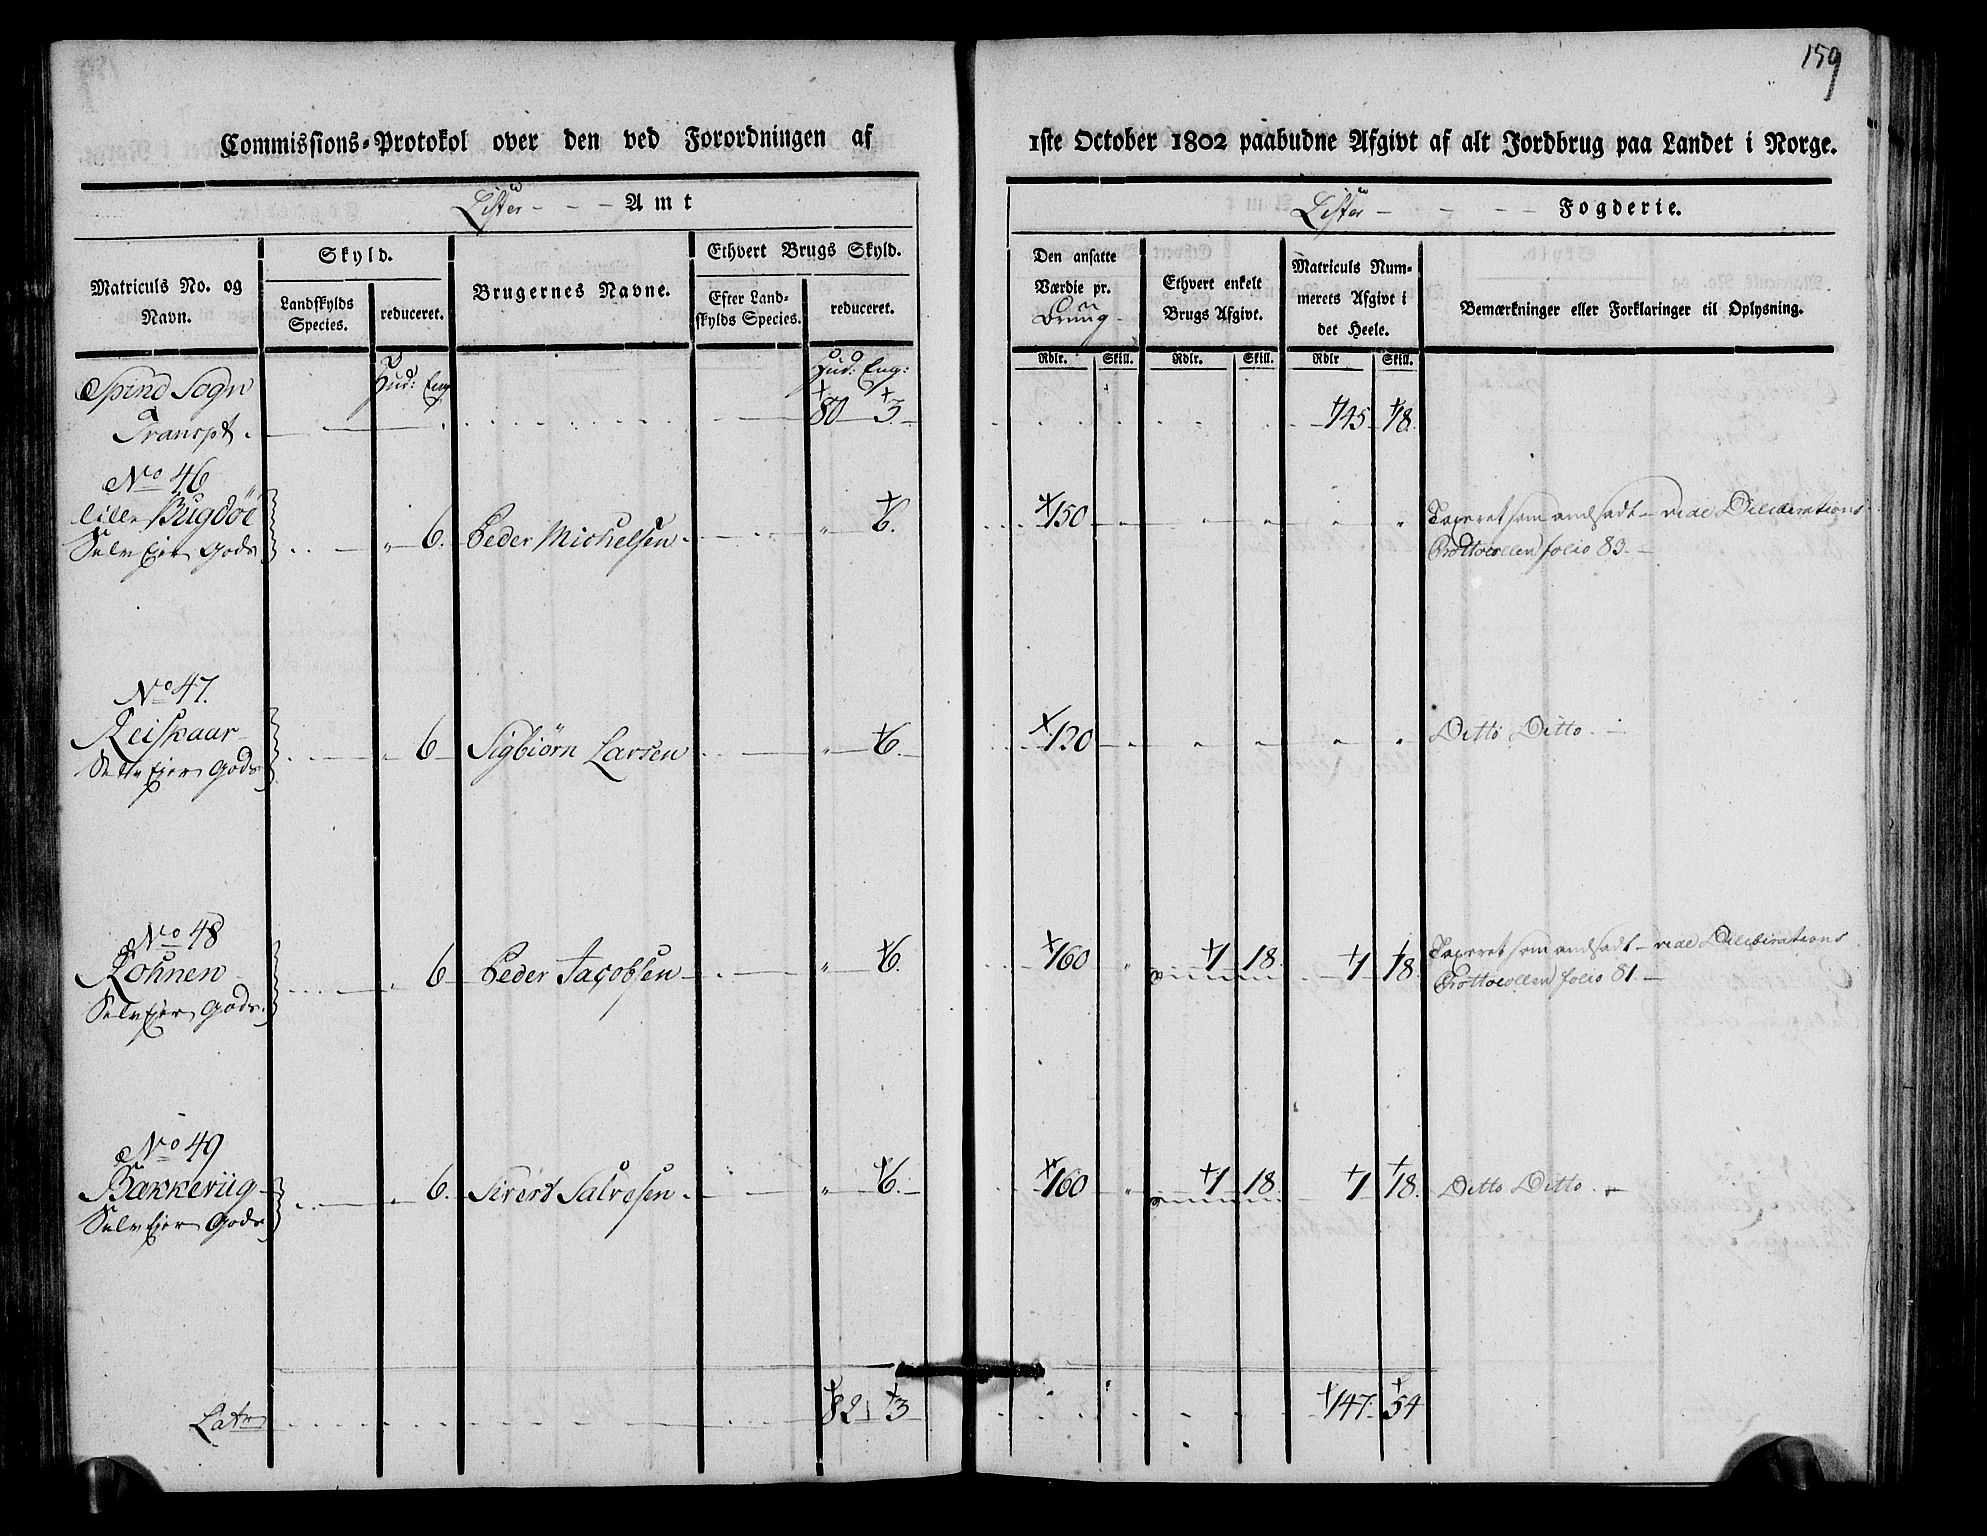 159
Commissions-Protokol over den ved Forordningen af 1ste October 1802 paabudne Afgivt af alt Jordbrug paa Landet i Norge.
Lister - - - Amt
Lister - - - - Fogderie.
Matriculs No. og Navn.
Skyld.
Landskylds Species.
reduceret.
Brugernes Navne.
Ethvert Brugs Skyld.
Efter Landskylds Species.
reduceret.
Den ansatte Værdie pr. Bruug
Ethvert enkelt Brugs Afgivt.
Matriculs Nummerets Afgivt i det Heele.
Bemærkninger eller Forklaringer til Oplysning.
Rdlr. Skill. Rdlr. Skill. Rdlr Skill.
Hud: Eng
Hud: Eng:
Spind Sogn
Transpt. 80 3. 145 18.
No 46
Lille Bugdøe
Selv Eier Gods " 6. Peder Michelsen " 6. 150 " " " " " Taxeret som andsadt - vide Deliberations
Prottocollen folio 83.
No 47.
Reiskaar
Selv Eier Gods " 6 Sigbiørn Larsen " 6. 120 " " " " " Ditto Ditto.
No 48
Rohnen
Selv Eier Gods. " 6 Peder Jacobsen " 6. 160 " 1 18. 1 18. Taxeret som andsadt - vide Deliberations
Prottocollen folio 81
No 49
Bækkerüg
Selv Eier Gods " 6. Sivert Salvesen " 6. 160 " 1 18. 1 18. Ditto Ditto.
Latus 82 3 147. 54